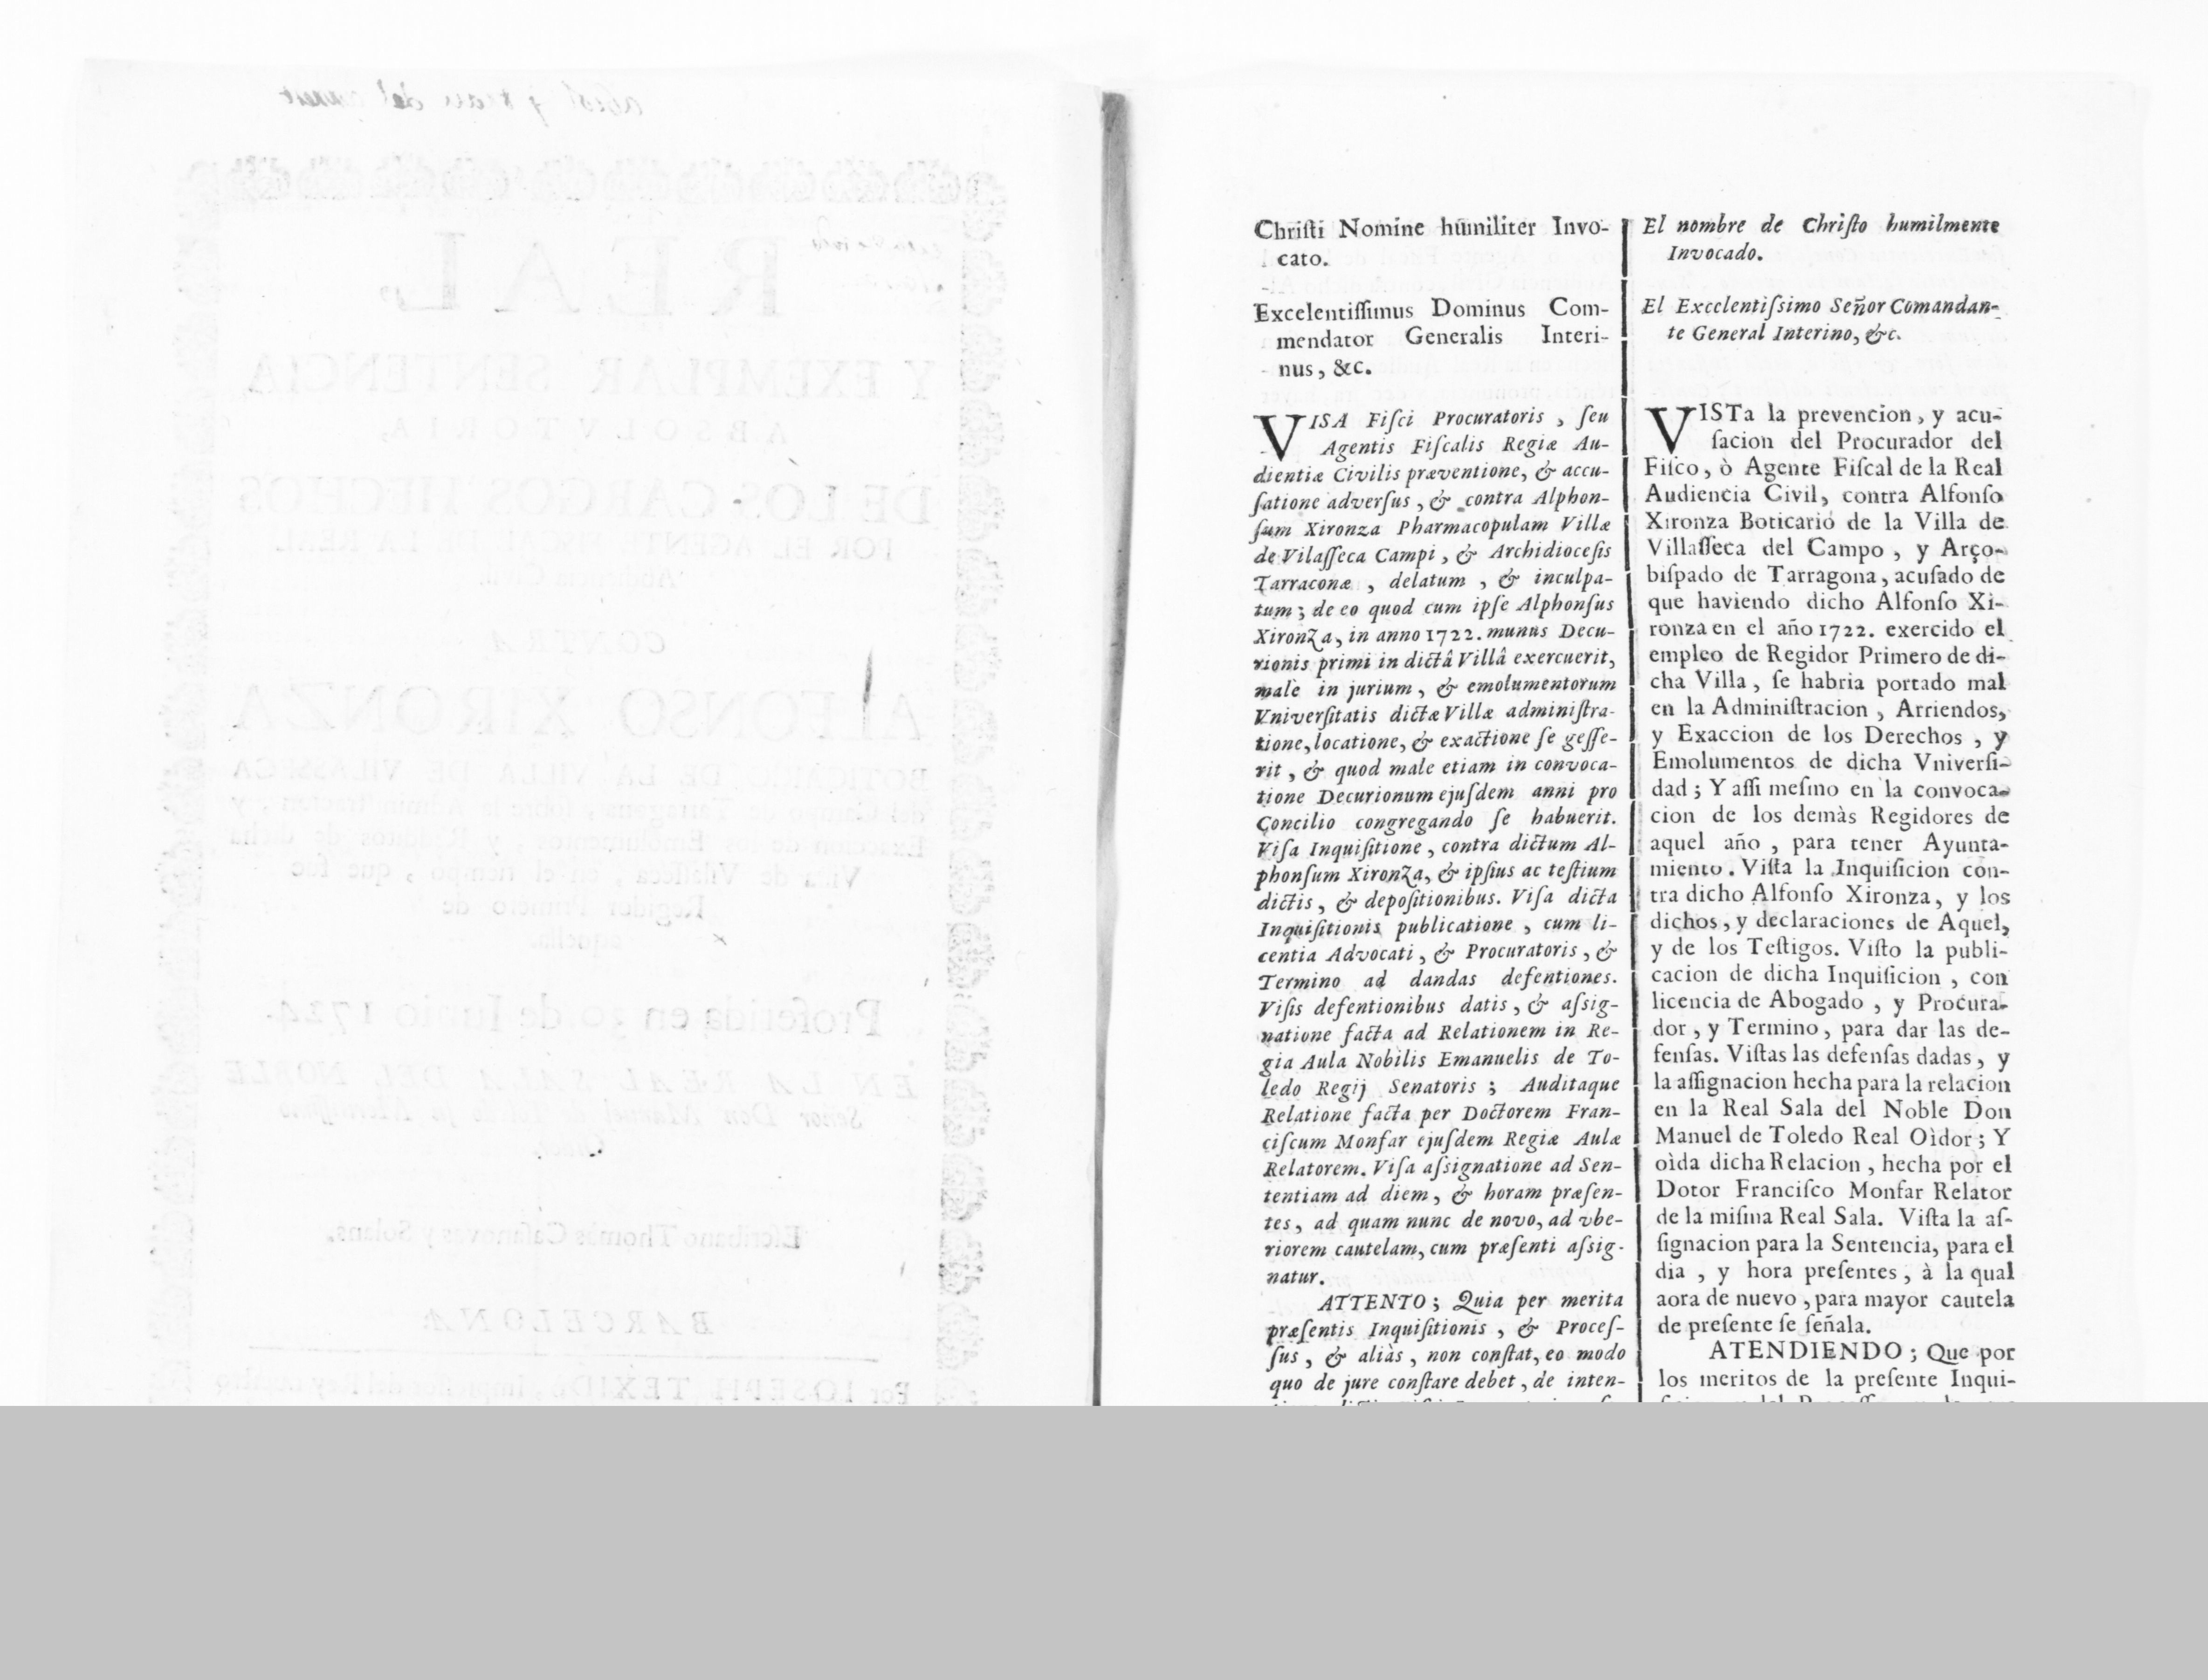 REAL
Y EXEMPLAR SENTENCIA
ABSOLVTORIA,
DE LOS CARGOS HECHOS
POR EL AGENTE FISCAL DE LA REAL
Audiencia Civil,
CONTRA
ALFONSO XIRONZA
BOTICARIO DE LA VILLA DE VILASSECA
del Campo de Tarragona, sobre la Administracion, y
Exaccion de los Emolumentos, y Reditos de dicha
Villa de Vilaſſeca, en el tiempo, que fue
Regidor Primero de
aquella.
Proferida en 30 de Junio 1724.
EN LA REAL SALA DEL NOBLE
Señor Don Manuel de Toledo ſu Meritiſſimo
Eſcribano Thomàs Caſanovas y Solans.
BARCELONA:
Por IOSEPH TEXIDÒ, Impreſſor del Rey nueſtro
Chriſti Nomine humiliter Invo-
cato.
Excelentiſſimus Dominus Com-
mendator Generalis Interi-
nus, &c.
VISA Fiſci Procuratoris, ſeu
Agentis Fiſcalis Regiæ Au-
dientiæ Civilis præventione, & accu-
ſatione adverſus, & contra Alphon-
ſum Xironza Pharmacopulam Villæ
de Vilaſſeca Campi, & Archidioceſis
Tarraconæ, delatum, & inculpa-
tum; de eo quod cum ipſe Alphonſus
Xironza, in anno 1722. munus Decu-
rionis primi in dictâ Villâ exercuerit,
malè in jurium, & emolumentorum
Vniverſitatis dictæ Villæ adminiſtra-
tione, locatione, & exactione ſe geſſe-
rit, & quod male etiam in convoca-
tione Decurionum ejuſdem anni pro
Concilio congregando ſe habuerit.
Viſa Inquiſitione, contra dictum Al-
phonſum Xironza, & ipſius ac teſtium
dictis, & depoſitionibus. Viſa dicta
Inquiſitionis publicatione, cum li-
centia Advocati, & Procuratoris, &
Termino ad dandas defentiones.
Viſis defentionibus datis, & aſsig-
natione facta ad Relationem in Re-
gia Aula Nobilis Emanuelis de To-
ledo Regij Senatoris; Auditaque
Relatione facta per Doctorem Fran-
ciſcum Monfar ejuſdem Regiæ Aulæ
Relatorem. Viſa aſsignatione ad Sen-
tentiam ad diem, & horam præſen-
tes, ad quam nunc de novo, ad vbe-
riorem cautelam, cum præſenti aſsig-
natur.
ATTENTO; Quia per merita
præſentis Inquiſitionis, & Proceſ-
ſus, & aliàs, non conſtat, eo modo
quo de jure conſtare debet, de inten-
El nombre de Chriſto humilmente
Invocado.
El Excelentiſsimo Señor Comandan-
te General Interino, &c.
VISTa la prevencion, y acu-
ſacion del Procurador del
Fiſco, ò Agente Fiſcal de la Real
Audiencia Civil, contra Alfonſo
Xironza Boticario de la Villa de
Villaſſeca del Campo, y Arço-
biſpado de Tarragona, acuſado de
que haviendo dicho Alfonſo Xi-
ronza en el año 1722. exercido el
empleo de Regidor Primero de di-
cha Villa, ſe habria portado mal
en la Adminiſtracion, Arriendos,
y Exaccion de los Derechos, y
Emolumentos de dicha Vniverſi-
dad; Y aſſi meſmo en la convoca-
cion de los demàs Regidores de
aquel año, para tener Ayunta-
miento. Viſta la Inquiſicion con-
tra dicho Alfonſo Xironza, y los
dichos, y declaraciones de Aquel,
y de los Teſtigos. Viſto la publi-
cacion de dicha Inquiſicion, con
licencia de Abogado, y Procura-
dor, y Termino, para dar las de-
fenſas. Viſtas las defenſas dadas, y
la aſſignacion hecha para la relacion
en la Real Sala del Noble Don
Manuel de Toledo Real Oìdor; Y
oìda dicha Relacion, hecha por el
Dotor Franciſco Monfar Relator
de la miſma Real Sala. Viſta la aſ-
ſignacion para la Sentencia, para el
dia, y hora preſentes, à la qual
aora de nuevo, para mayor cautela
de preſente ſe ſeñala.
ATENDIENDO; Que por
los meritos de la preſente Inqui-